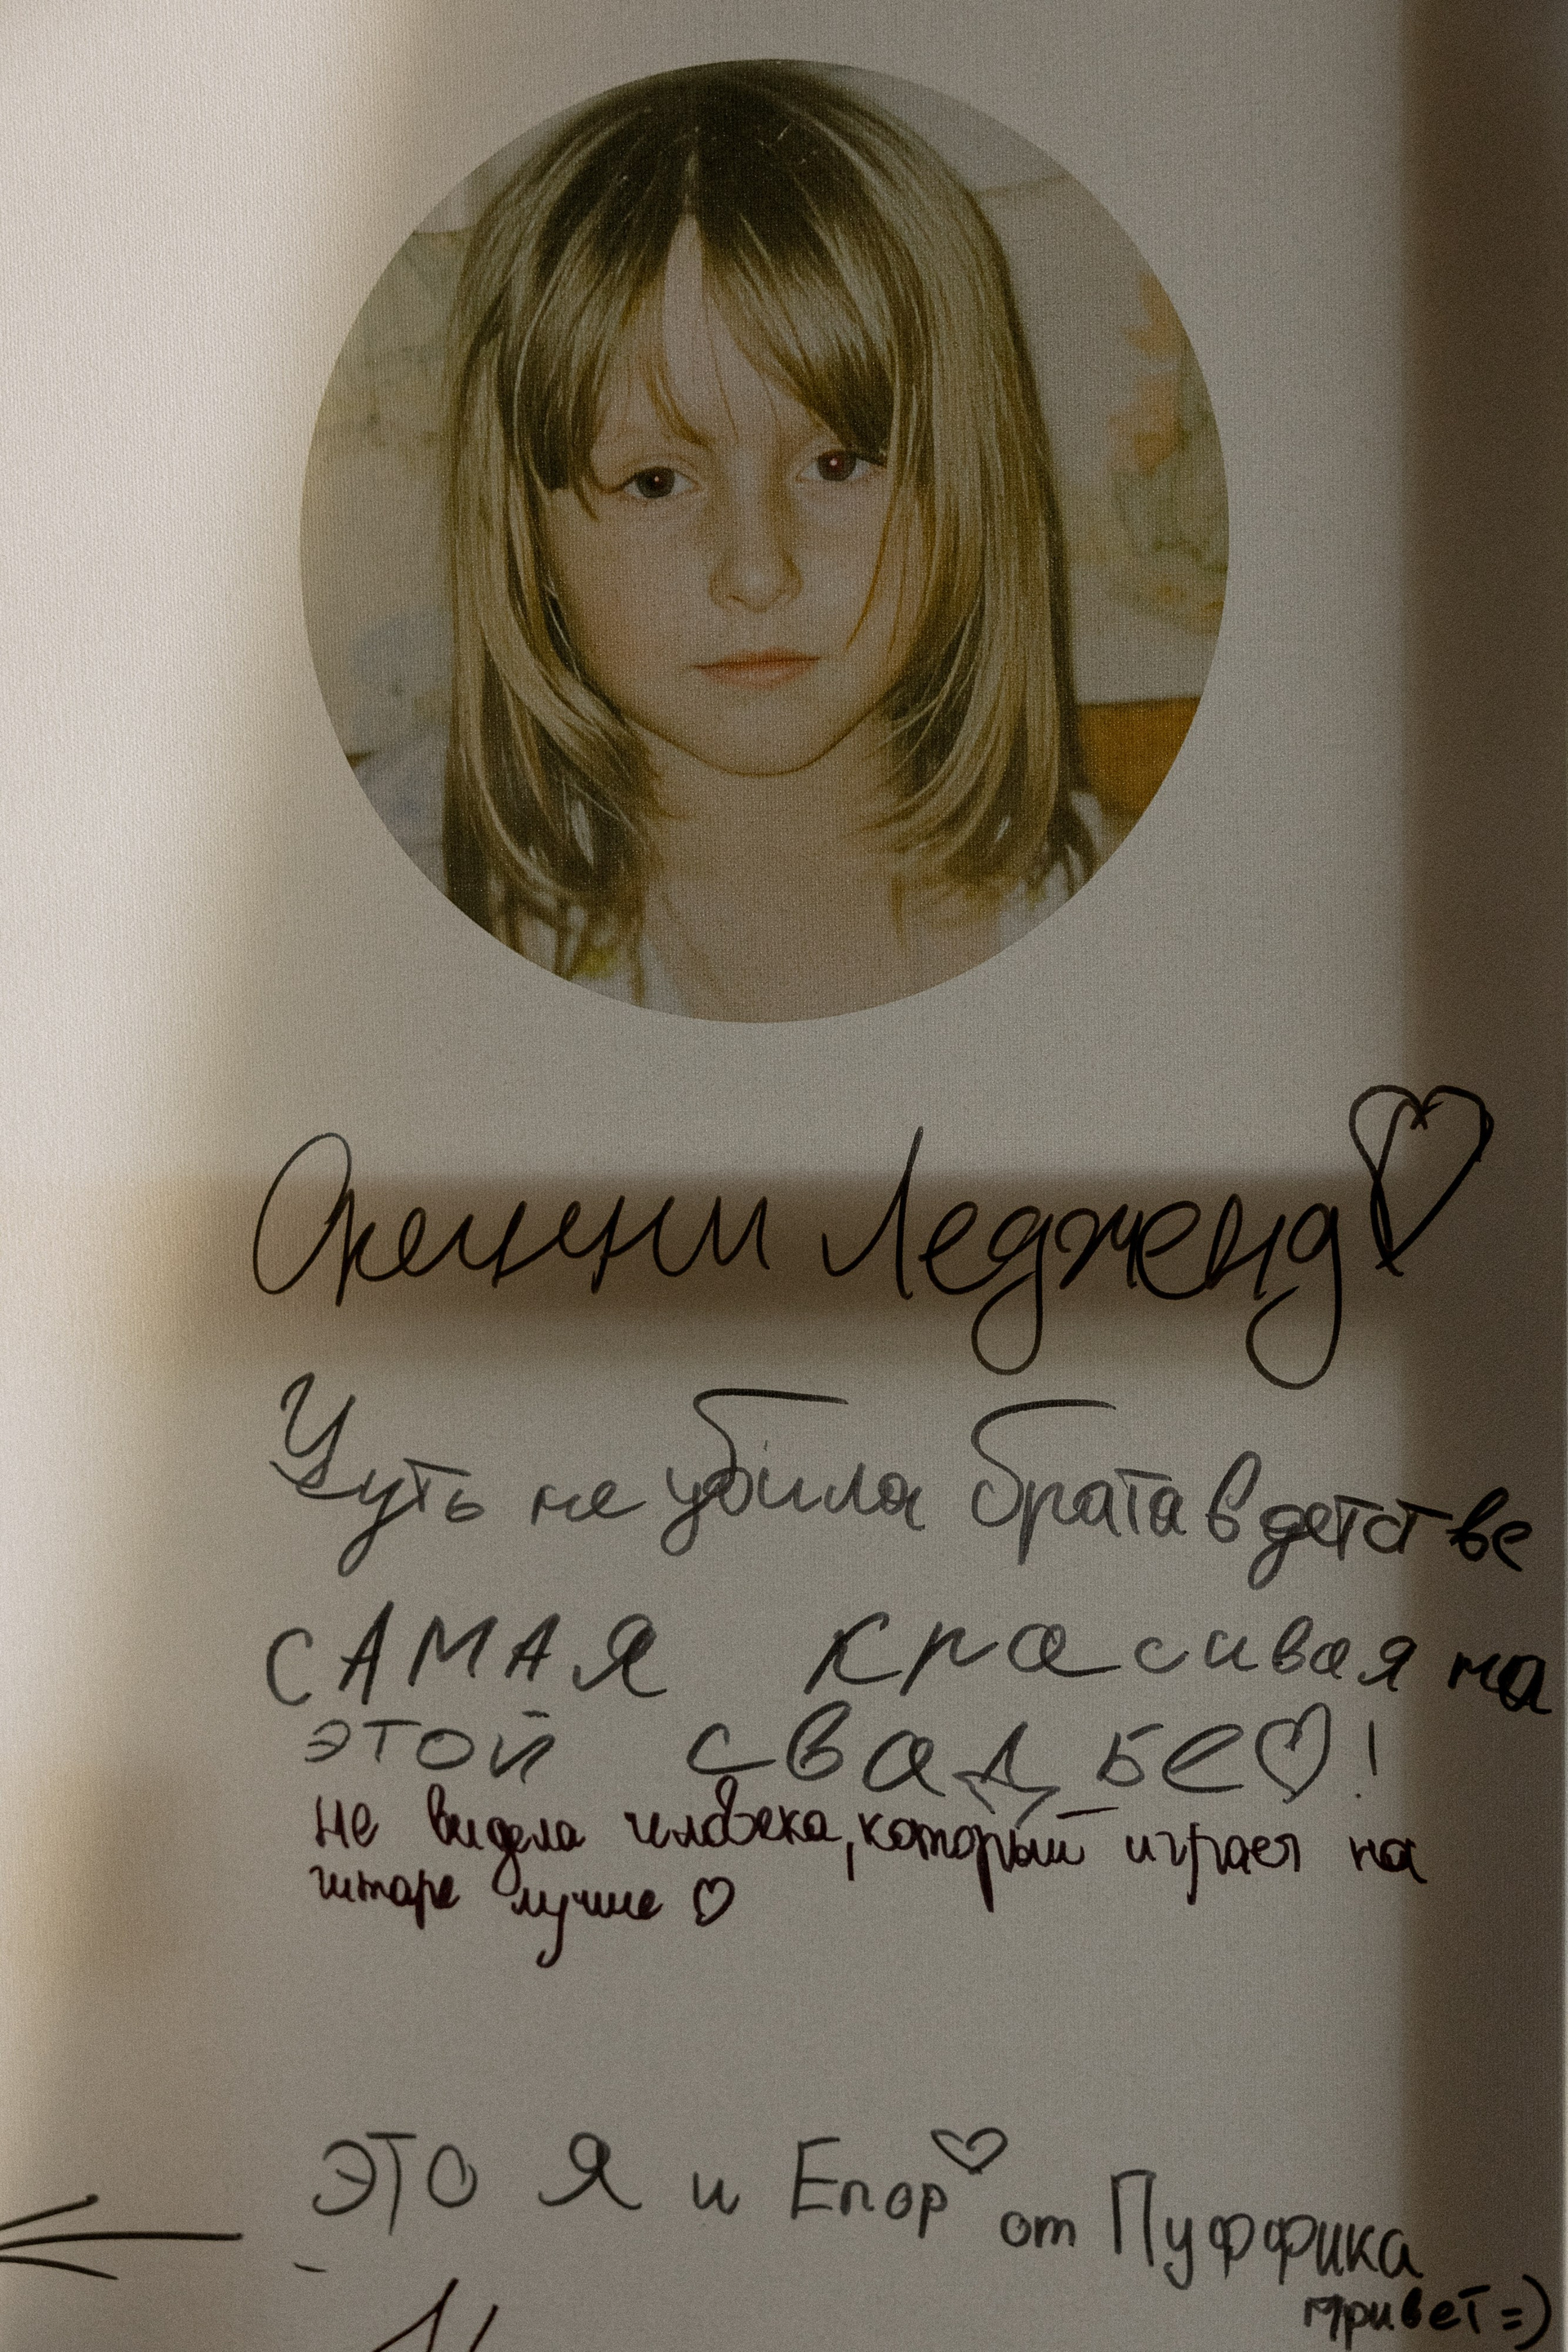 Дженни Ледженд
Чуть не убила брата в детстве
САМАЯ красивая на
этой свадьбе!
не видела человека, который играет на
гитаре лучше
ЭТО Я и Егор
от Пуффика
привет =)